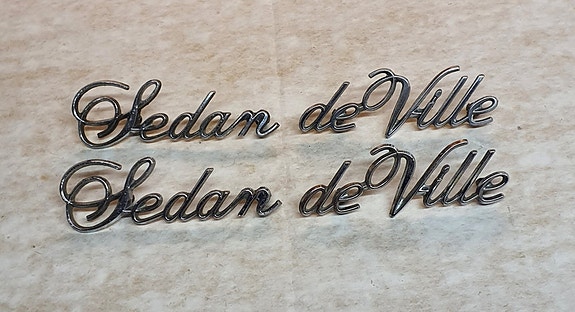 Sedan de Ville
Sedan de Ville